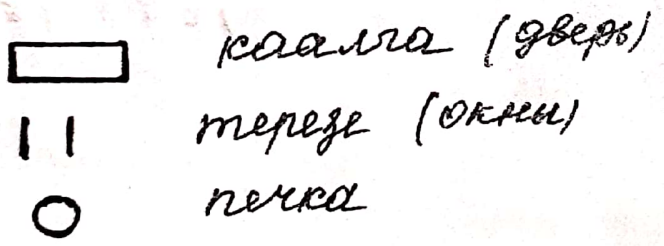 каалга (дверь)
терезе (окны)
печка